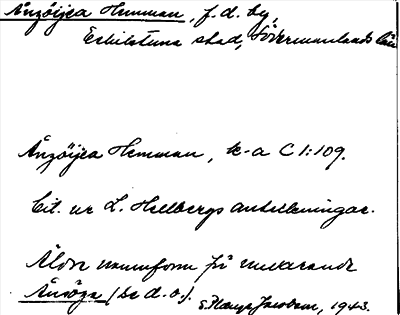 Ånzöijea Hemman, f.d. by,
Eskilstuna stad, Södermanlands län
Ånzöijea Hemman, k-a C 1:109.
Cit. ur L. Hellbergs anteckningar.
Äldre namnform på nuvarande
(se d.o.). 1943.